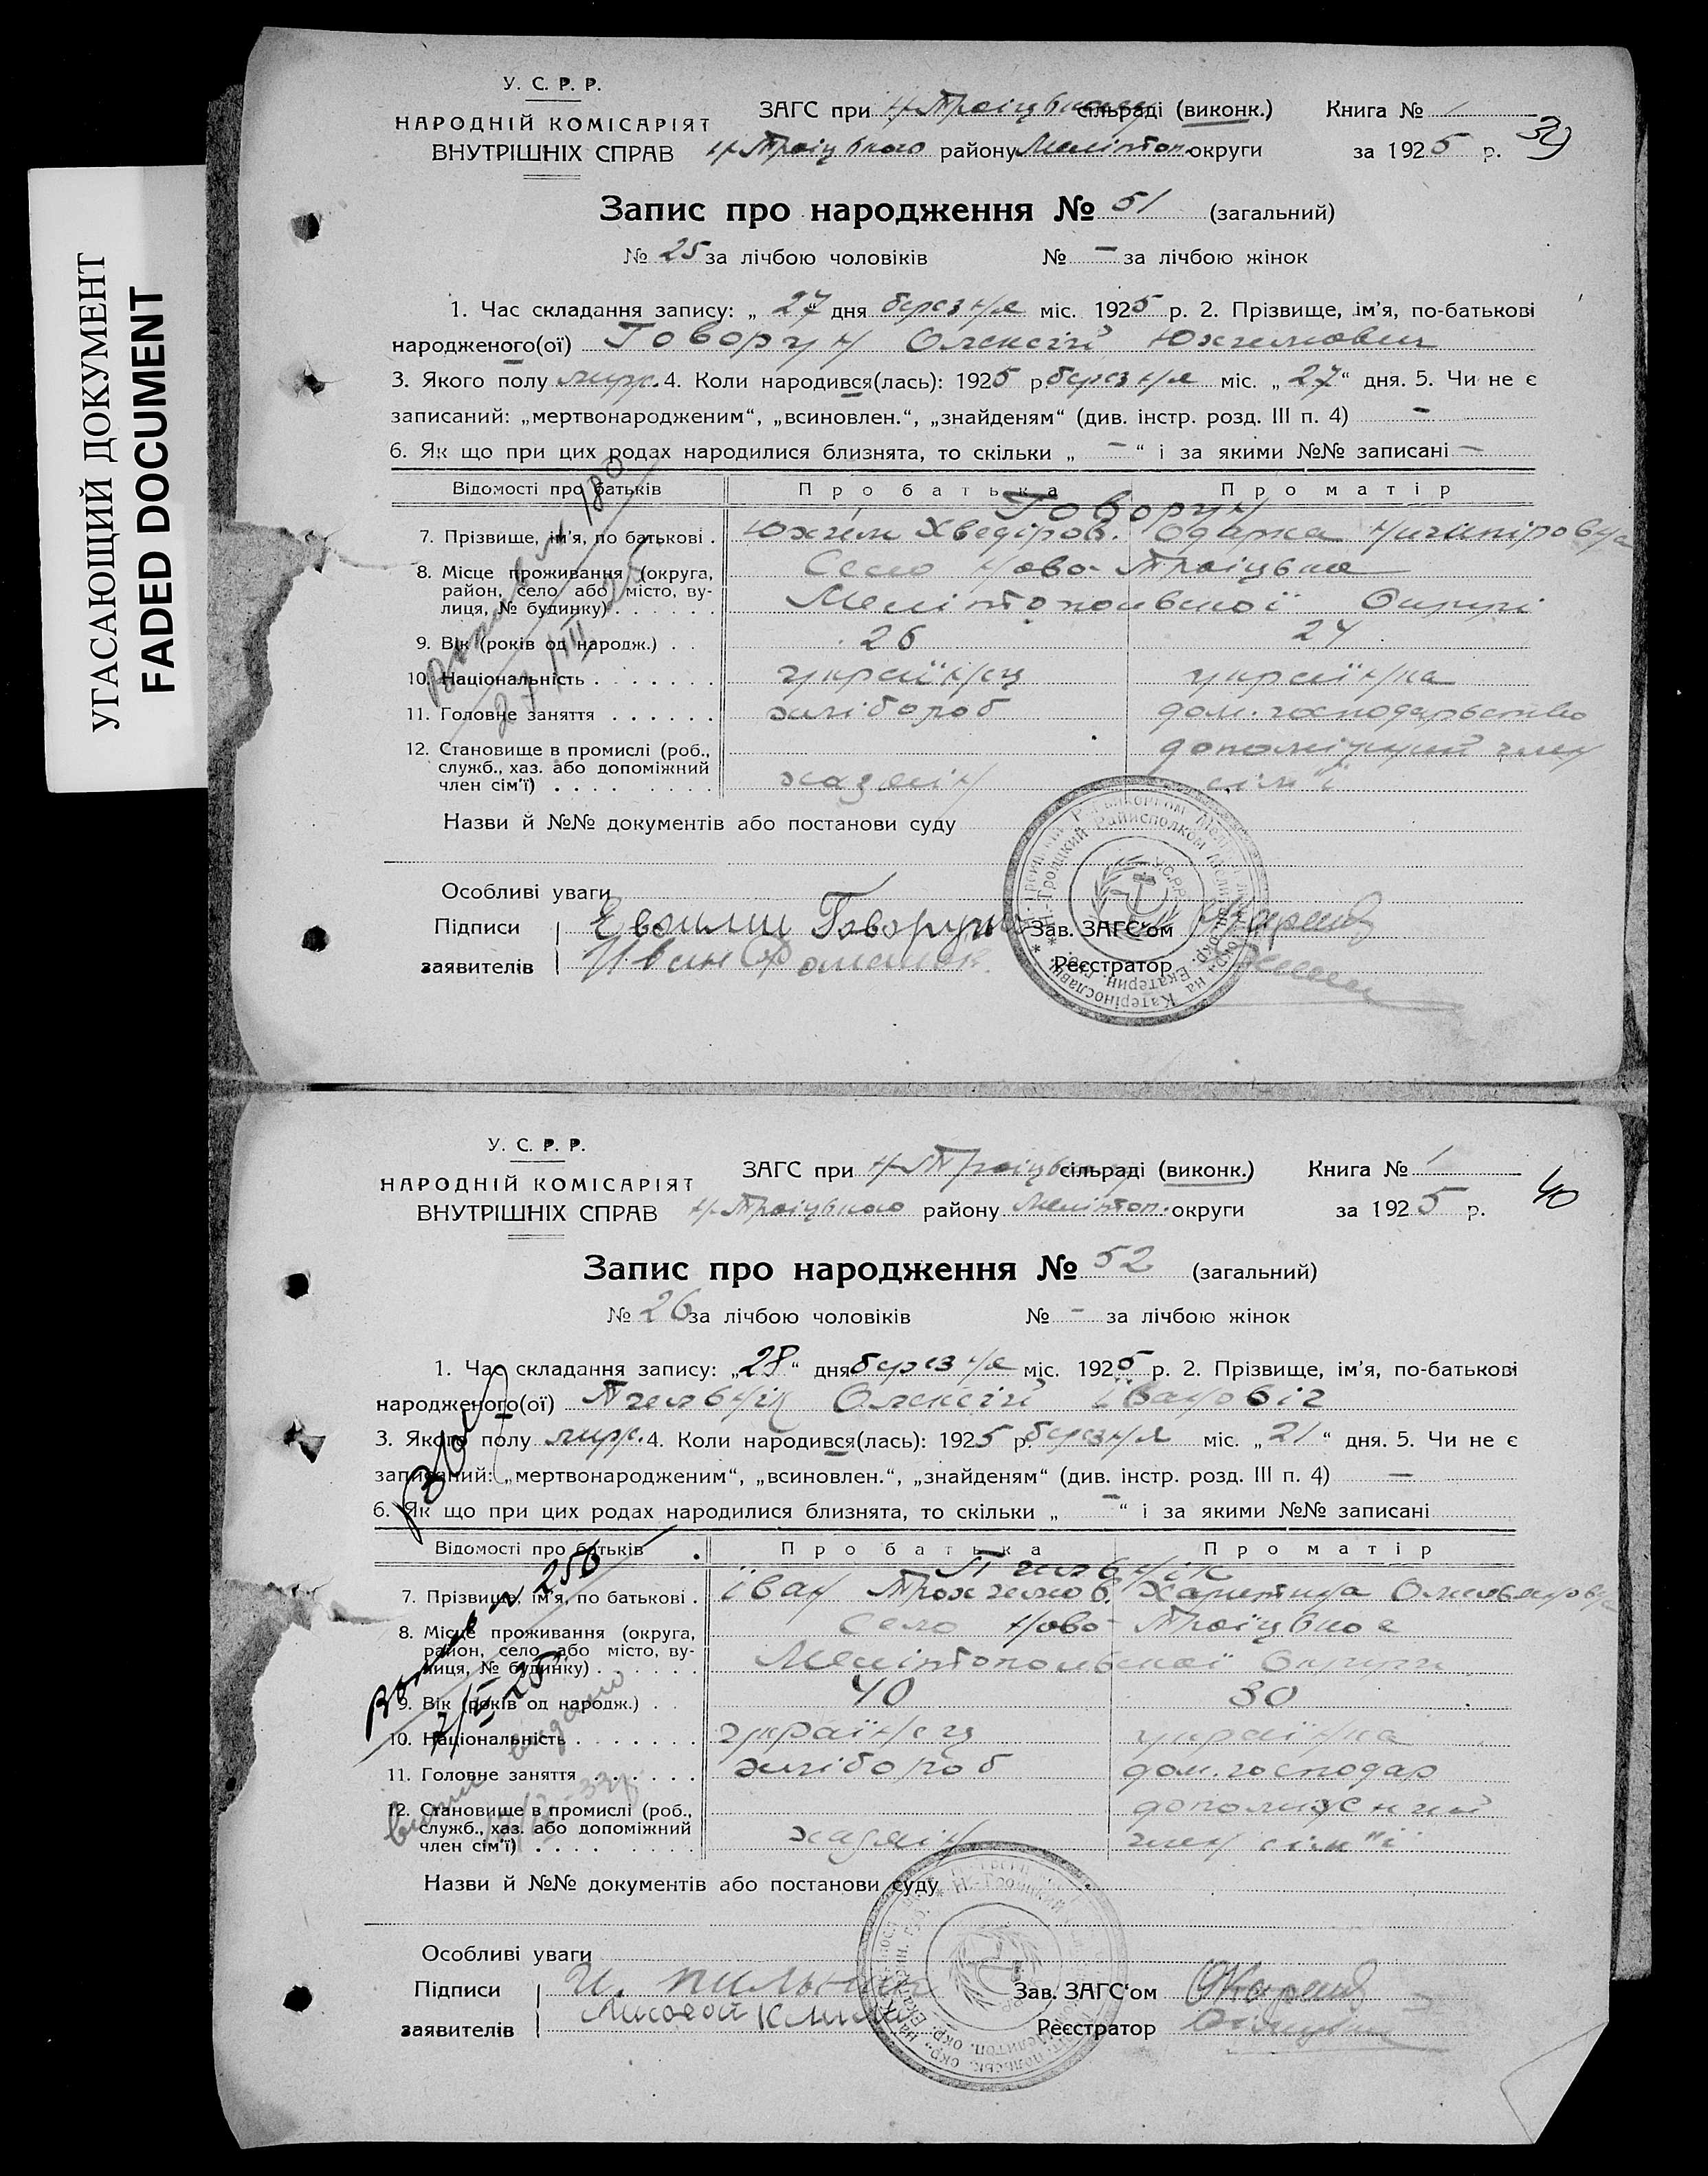 УГАСАЮЩИЙ ДОКУМЕНТ
FADED DOCUMENT
У. С. Р. Р.
НАРОДНІЙ КОМІСАРІЯТ
ВНУТРІШНІХ СПРАВ
ЗАГС при Н-Троіцькому сільраді (виконк.) Книга № 1
Н-Троіцького району Мелітоп. округи за 1925 р. 39
Запис про народження № 51 (загальний)
№ 25 за лічбою чоловіків № – за лічбою жінок
1. Час складання запису: „27“ дня березня міс. 1925 р. 2. Прізвище, ім'я, по-батькові
народженого(ої) Говорун Олексій Юхимович
3. Якого полу муж. 4. Коли народився(лась): 1925 р. березня міс. „27“ дня. 5. Чи не є
записаний: „мертвонародженим“, „всиновлен.“, „знайденям“ (див. інстр. розд. III п. 4) –
6. Як що при цих родах народилися близнята, то скільки „–“ і за якими №№ записані –
Відомості про батьків Про батька Про матір
Говорун
7. Прізвище, ім'я, по батькові . Юхим Хведіров. Одарка Ничипіровна
8. Місце проживання (округа, Село Ново-Троіцьке
район, село або місто, ву-
лиця, № будинку) . . . . . Мелітопольської Округи
9. Вік (років од народж.) . . 26 24
10. Національність . . . . . . . українец українка
11. Головне заняття . . . . . . хлібороб дом. господарьство
12. Становище в промислі (роб., допоміжний член
служб., хаз. або допоміжний
член сім'ї) . . . . хазяін сімʼї
180
27/III 25
Назви й №№ документів або постанови суду
Особливі уваги
Підписи Говорун Зав. ЗАГС'ом
заявителів Иван Реєстратор
У. С. Р. Р.
НАРОДНІЙ КОМІСАРІЯТ
ВНУТРІШНІХ СПРАВ
ЗАГС при Н-Троіцькому сільраді (виконк.) Книга № 1
Н-Троіцького району Мелітоп. округи за 1925 р. 40
Запис про народження № 52 (загальний)
№ 26 за лічбою чоловіків № – за лічбою жінок
1. Час складання запису: „28“ дня березня міс. 1925 р. 2. Прізвище, ім'я, по-батькові
народженого(ої) Пильнік Олексій Івановіч
3. Якого полу муж. 4. Коли народився(лась): 1925 р. березня міс. „21“ дня. 5. Чи не є
записаний: „мертвонародженим“, „всиновлен.“, „знайденям“ (див. інстр. розд. III п. 4) –
6. Як що при цих родах народилися близнята, то скільки „–“ і за якими №№ записані
Відомості про батьків Про батька Про матір
Пильнік
7. Прізвище, ім'я, по батькові . Іван Трохимов. Харитина
8. Місце проживання (округа, Село Ново-Троіцькое
район, село або місто, ву-
лиця, № будинку) . . . . . . Мелітопольскої Округи
9. Вік (років од народж.) . . 40 30
10. Національність . . . . . . . українец українка
11. Головне заняття . . . . . . хлібороб дом. господар
12. Становище в промислі (роб., допоможений
служб., хаз. або допоміжний
член сім'ї) . . . . хазяін член сім"ї
256
видано
Назви й №№ документів або постанови суду
Особливі уваги
Підписи И. Пильник Зав. ЗАГС'ом
заявителів Реєстратор